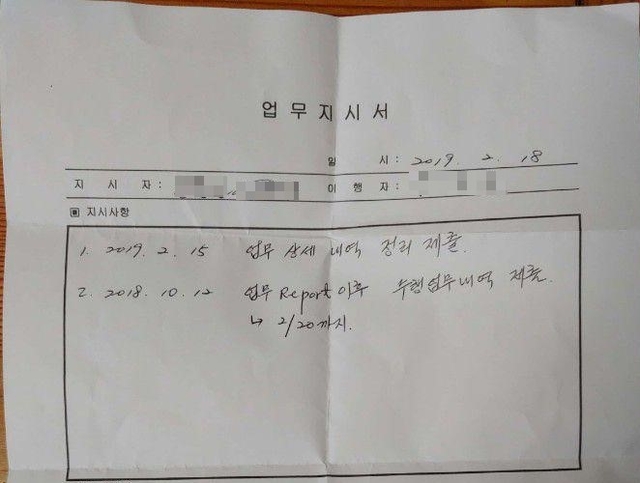 업무지시서
일 시 : 2019. 2. 18
지 시 자 : 이 행 자 :
▣ 지시사항
1. 2019. 2. 15 업무 상세 내역 정리 제출.
2. 2018. 10. 12 업무 Report 이후 수행업무내역 제출.
↳ 2/20까지.